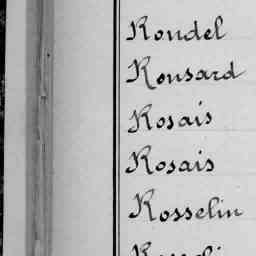 Rondel
Ronsard
Rosais
Rosais
Rosselin